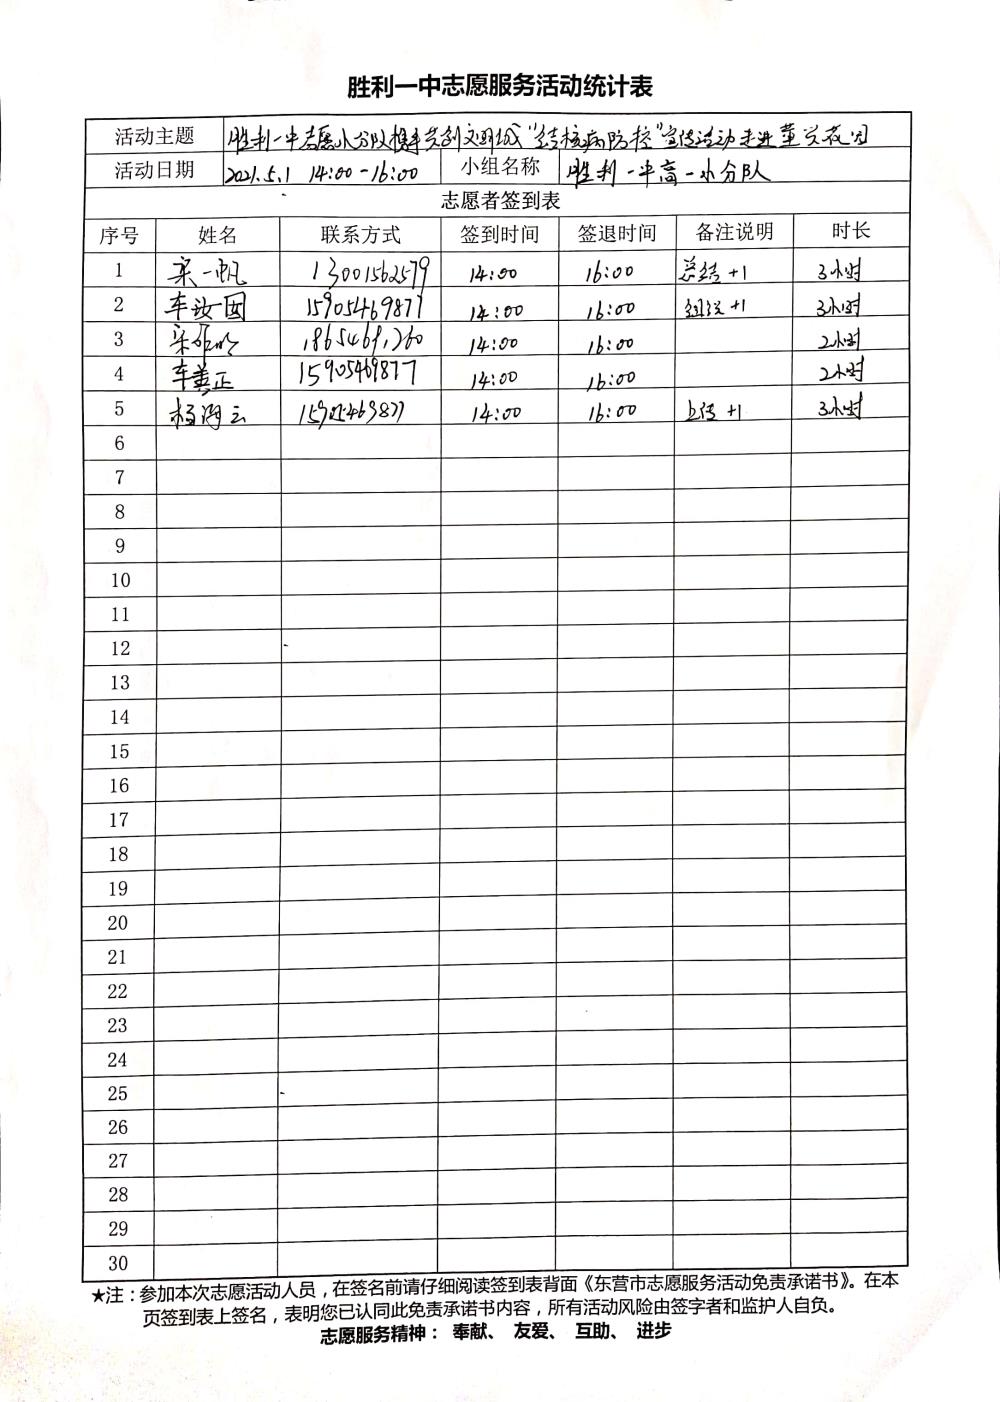 胜利一中志愿服务活动统计表
活动主题 胜利一中志愿小分队携手共创文明城"结核病防控"宣传活动走进
活动日期 2021.5.1 14:00-16:00 小组名称 胜利一中高一小分队
志愿者签到表
序号 姓名 联系方式 签到时间 签退时间 备注说明 时长
1 一帆 13001562579 14:00 16:00 总结+1 3小时
2 车汝 15905469877 14:00 16:00 组织+1 3小时
3 14:00 16:00 2小时
4 车善正 15905469877 14:00 16:00 2小时
5 杨海云 15905469877 14:00 16:00 上传+1 3小时
6
7
8
9
10
11
12
13
14
15
16
17
18
19
20
21
22
23
24
25
26
27
28
29
30
★注：参加本次志愿活动人员，在签名前请仔细阅读签到表背面《东营市志愿服务活动免责承诺书》。在本
页签到表上签名，表明您已认同此免责承诺书内容，所有活动风险由签字者和监护人自负。
志愿服务精神： 奉献、 友爱、 互助、 进步